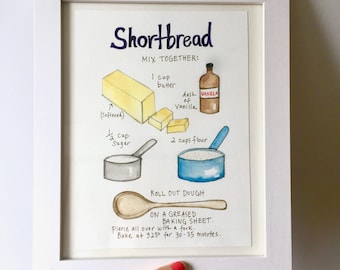 Shortbread
MIX TOGETHER:
1 cup
butter
(softened)
VANILLA
dash
of
vanilla
½ cup
sugar
2 cups flour
ROLL OUT DOUGH
ON A GREASED
BAKING SHEET.
Pierce all over with a fork.
Bake at 325° for 30-35 minutes.